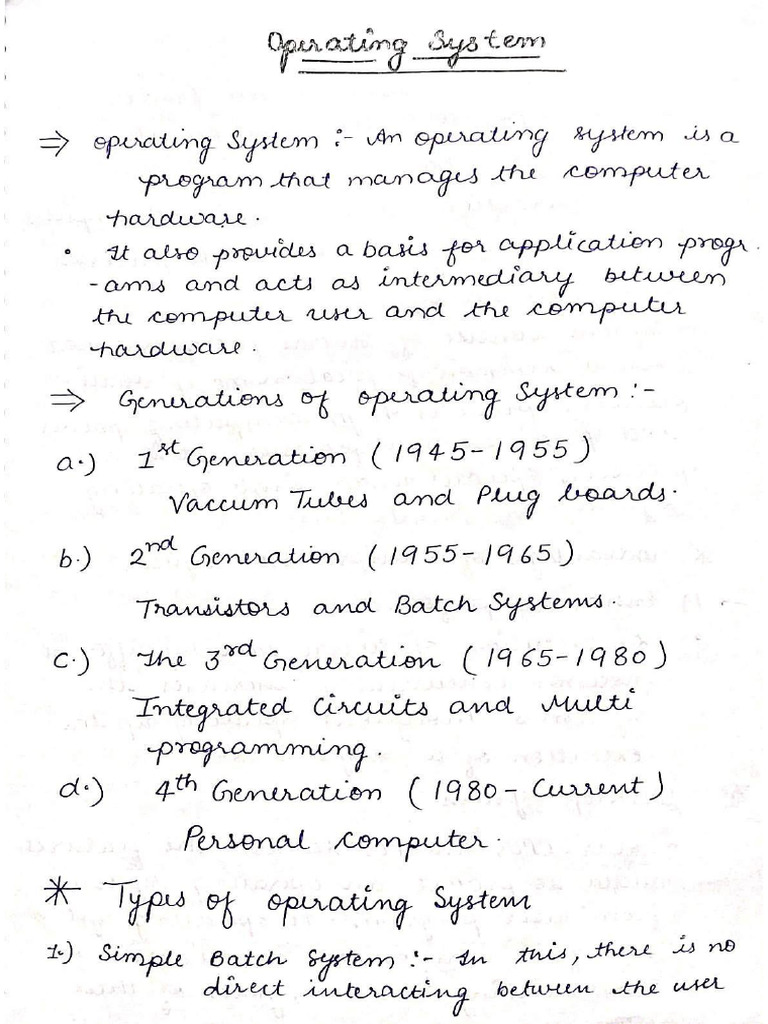 Operating System
⇒ operating System :- An operating system is a
program that manages the computer
hardware.
• It also provides a basis for application progr.
-ams and acts as intermediary between
the computer user and the computer
hardware.
⇒ Generations of operating System :-
a.) 1st Generation (1945-1955)
Vaccum Tubes and Plug boards.
b.) 2nd Generation (1955-1965)
Transistors and Batch Systems.
c.) The 3rd Generation (1965-1980)
Integrated Circuits and Multi
programming.
d.) 4th Generation (1980- Current)
Personal computer.
* Types of operating System
1.) Simple Batch System :- In this, there is no
direct interacting between the user